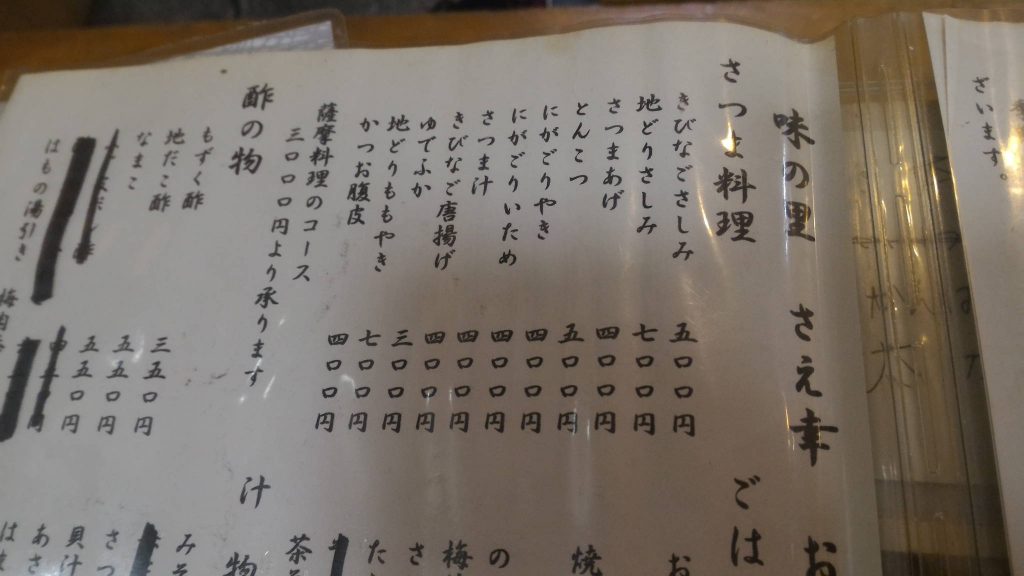 ざいます。
味の里 さえ幸
さつま料理
きびなごさしみ 五〇〇円
地どりさしみ 七〇〇円
さつまあげ 四〇〇円
とんこつ 五〇〇円
にがごりやき 四〇〇円
にがごりいため 四〇〇円
さつま汁 四〇〇円
きびなご唐揚げ 四〇〇円
ゆでふか 三〇〇円
地どりももやき 七〇〇円
かつお腹皮 四〇〇円
薩摩料理のコース
三〇〇〇円より承ります
酢の物
もずく酢 三五〇円
地だこ酢 五五〇円
なまこ 五五〇円
はもの湯引き
梅肉
ごは
お
焼
の
梅
さ
た
茶
汁 物
みそ
さつ
貝汁
あさ
はま